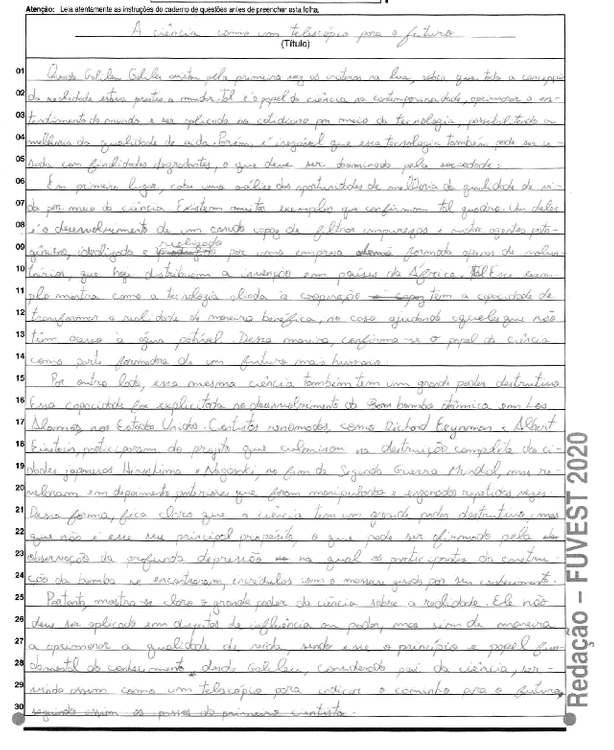 Atenção: Leia atentamente as instruções do caderno de questões antes de preencher esta folha.
A ciência como um telescópio para o futuro
(Título)
01 Quando Galileu Galilei avistou pela primeira vez as crateras na lua, sabia que toda a concepção
02 da realidade estava prestes a mudar. Tal é o papel da ciência na contemporaneidade, aprimorar o en-
03 tendimento do mundo e ser aplicada no cotidiano por meio da tecnologia, possibilitando a
04 melhoria da qualidade de vida. Porém, é inegável que essa tecnologia também pode ser u-
05 sada com finalidades degradantes, o que deve ser pela sociedade.
06 Em primeiro lugar, cabe uma análise das oportunidades de melhoria da qualidade de vi-
07 da por meio da ciência. Existem muitos exemplos que confirmam tal quadro. Um deles
08 é o desenvolvimento de um canudo capaz de filtrar impurezas e matar agentes pato-
09 gênicos, idealizado e realizado por uma empresa formada apenas de volun-
10 tários, que hoje distribuem a invenção em países da África. Esse exem-
11 plo mostra como a tecnologia aliada à cooperação tem a capacidade de
12 transformar a realidade de maneira benéfica, no caso ajudando aqueles que não
13 têm acesso à água potável. Dessa maneira, confirma-se o papel da ciência
14 como parte formadora de um futuro mais humano.
15 Por outro lado, essa mesma ciência também tem um grande poder destrutivo.
16 Essa capacidade foi explicitada no desenvolvimento da bomba atômica em Los
17 Alamos, nos Estados Unidos. Cientistas renomados, como Richard Feynman e Albert
18 Einstein, participaram do projeto que culminou na destruição completa das ci-
19 dades japonesas Hiroshima e Nagasaki, no fim da Segunda Guerra Mundial, mas re-
20 velaram em depoimentos posteriores que foram manipulados e enganados repetidas vezes.
21 Dessa forma, fica claro que a ciência tem um grande poder destrutivo, mas
22 que não é esse seu principal propósito, o que pode ser afirmado pela
23 observação da profunda depressão na qual os participantes da constru-
24 ção da bomba se encontraram, incrédulos com o massacre gerado por seu conhecimento.
25 Portanto, mostra-se claro o grande poder da ciência sobre a realidade. Ele não
26 deve ser aplicado em disputas de influência ou poder, mas sim de maneira
27 a aprimorar a qualidade de vida, sendo esse o princípio e papel fun-
28 damental do conhecimento desde Galileu, considerado pai da ciência, ser-
29 vindo assim como um telescópio para indicar o caminho para o futuro,
30 seguindo assim os passos do primeiro cientista.
Redação – FUVEST 2020